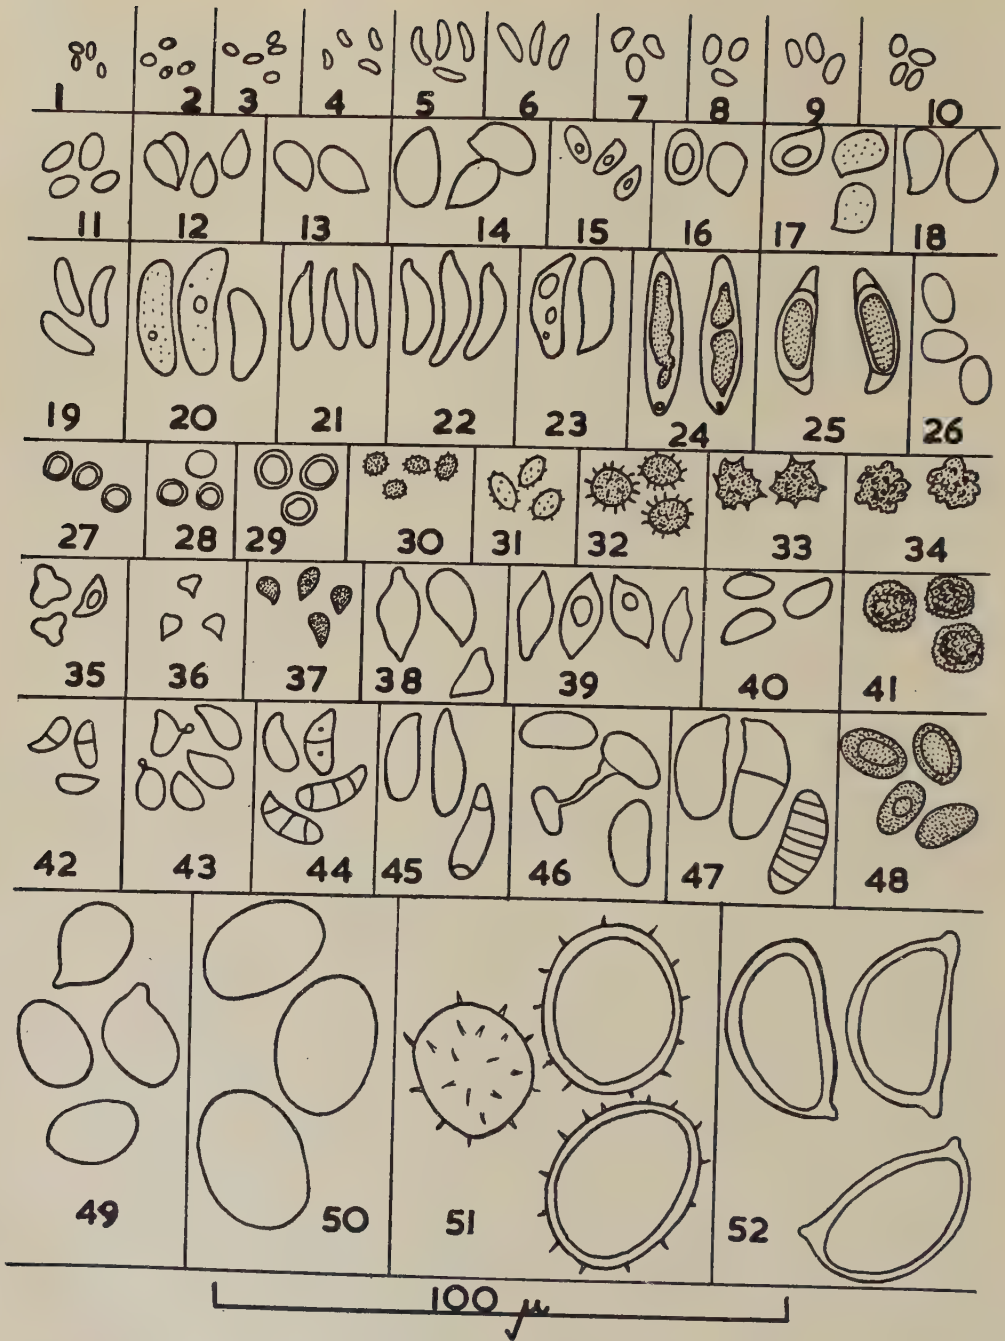 1 2 3 4 5 6 7 8 9 10
11 12 13 14 15 16 17 18
19 20 21 22 23 24 25 26
27 28 29 30 31 32 33 34
35 36 37 38 39 40 41
42 43 44 45 46 47 48
49 50 51 52
100 μ